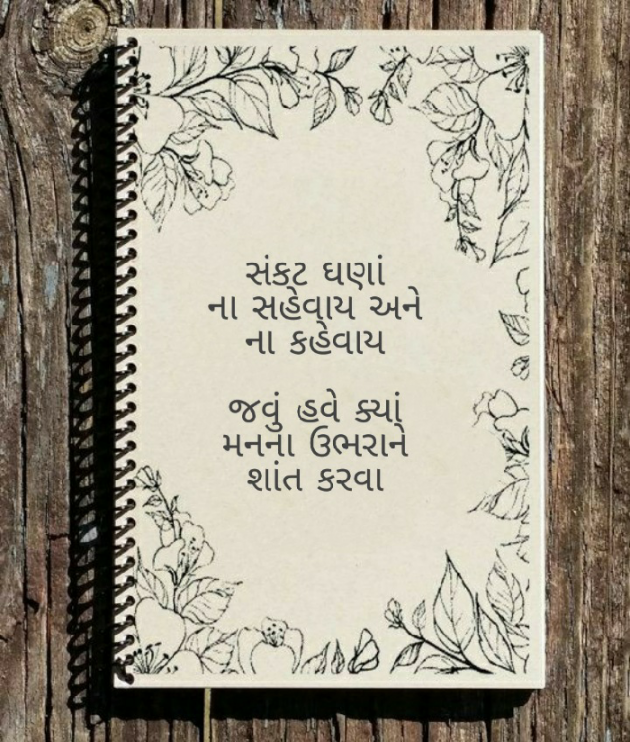 સંકટ ઘણાં
ના સહેવાય અને
ના કહેવાય
જવું હવે ક્યાં
મનના ઉભરાને
શાંત કરવા